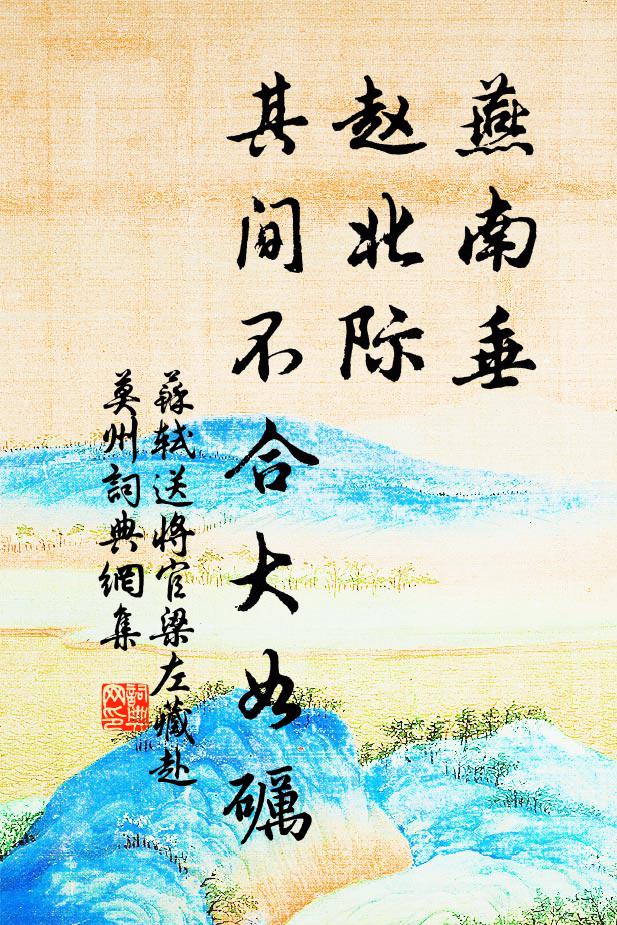 燕南垂
赵北际
其间不合大如砺
蘇軾送将官梁左藏赴
莫州詞典網集
詞典网印